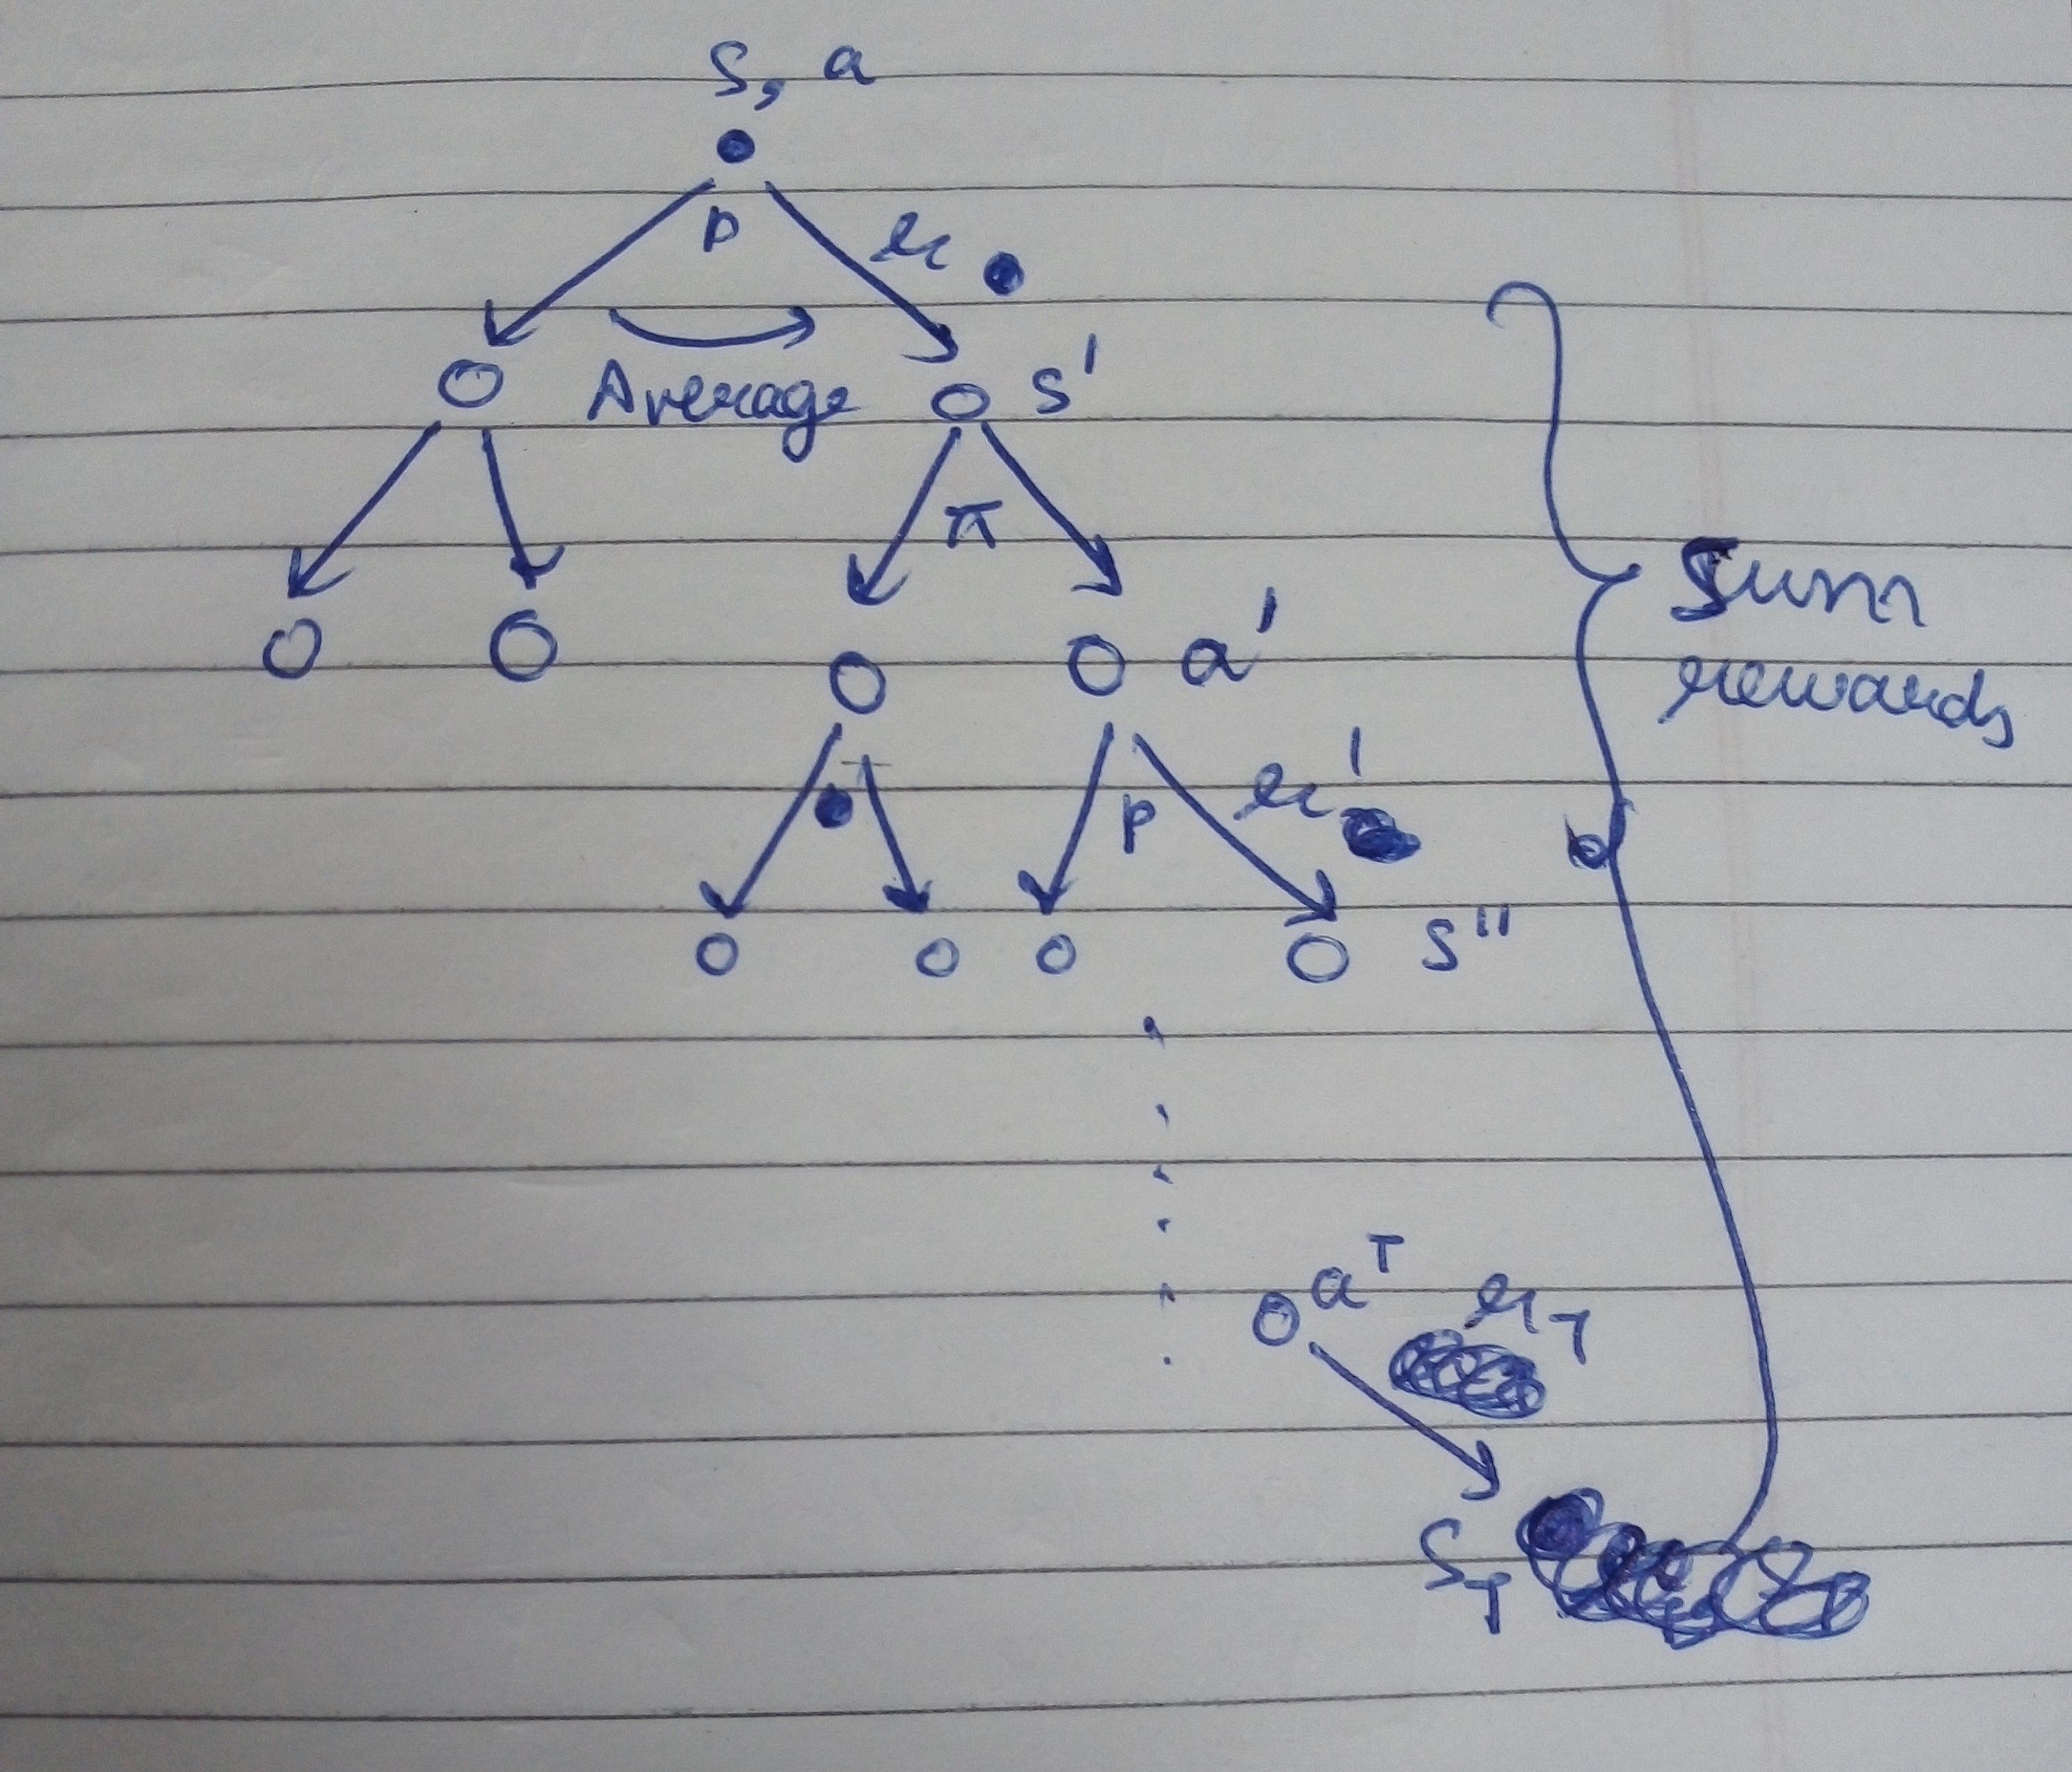 s, a
p r
Average s'
π
a'
Sum
rewards
p r'
s"
a^T r_T
s_T